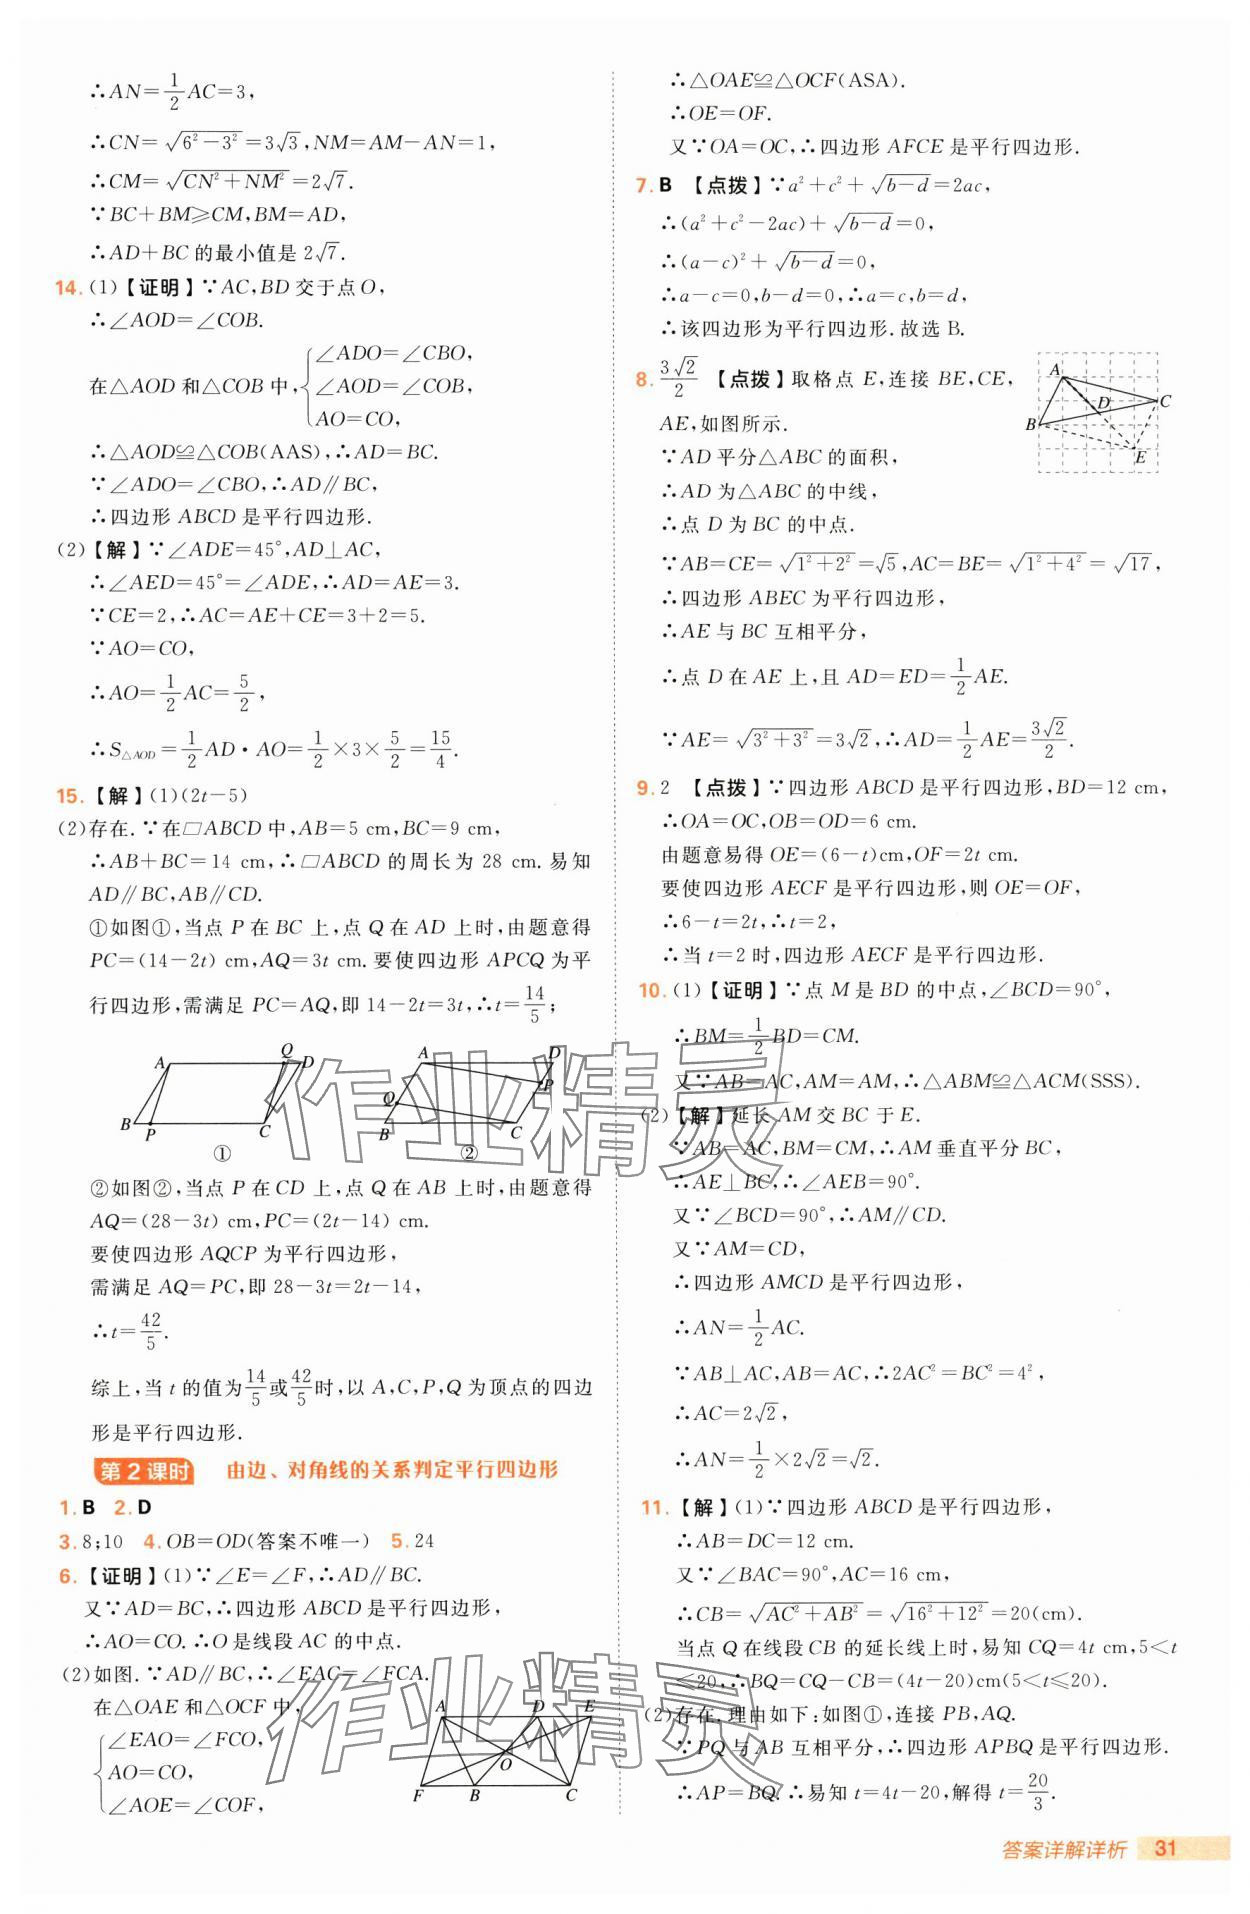 ∴AN=1/2 AC=3,
∴CN=√(6²-3²)=3√3,NM=AM-AN=1,
∴CM=√(CN²+NM²)=2√7.
∵BC+BM≥CM,BM=AD,
∴AD+BC 的最小值是 2√7.
14.(1)【证明】∵AC,BD 交于点 O,
∴∠AOD=∠COB.
在△AOD 和△COB 中,{∠ADO=∠CBO,
∠AOD=∠COB,
AO=CO,
∴△AOD≌△COB(AAS),∴AD=BC.
∵∠ADO=∠CBO,∴AD∥BC,
∴四边形 ABCD 是平行四边形.
(2)【解】∵∠ADE=45°,AD⊥AC,
∴∠AED=45°=∠ADE,∴AD=AE=3.
∵CE=2,∴AC=AE+CE=3+2=5.
∵AO=CO,
∴AO=1/2 AC=5/2,
∴S△AOD=1/2 AD·AO=1/2×3×5/2=15/4.
15.【解】(1)(2t-5)
(2)存在.∵在▱ABCD 中,AB=5 cm,BC=9 cm,
∴AB+BC=14 cm,∴▱ABCD 的周长为 28 cm.易知
AD∥BC,AB∥CD.
①如图①,当点 P 在 BC 上,点 Q 在 AD 上时,由题意得
PC=(14-2t) cm,AQ=3t cm.要使四边形 APCQ 为平
行四边形,需满足 PC=AQ,即 14-2t=3t,∴t=14/5;
A Q D
B P C
①
A D
Q P
B C
②
②如图②,当点 P 在 CD 上,点 Q 在 AB 上时,由题意得
AQ=(28-3t) cm,PC=(2t-14) cm.
要使四边形 AQCP 为平行四边形,
需满足 AQ=PC,即 28-3t=2t-14,
∴t=42/5.
综上,当 t 的值为14/5或42/5时,以 A,C,P,Q 为顶点的四边
形是平行四边形.
第 2 课时 由边、对角线的关系判定平行四边形
1.B 2.D
3.8;10 4.OB=OD(答案不唯一) 5.24
6.【证明】(1)∵∠E=∠F,∴AD∥BC.
又∵AD=BC,∴四边形 ABCD 是平行四边形,
∴AO=CO.∴O 是线段 AC 的中点.
(2)如图.∵AD∥BC,∴∠EAC=∠FCA.
在△OAE 和△OCF 中,
{∠EAO=∠FCO,
AO=CO,
∠AOE=∠COF,
A D E
O
F B C
∴△OAE≌△OCF(ASA).
∴OE=OF.
又∵OA=OC,∴四边形 AFCE 是平行四边形.
7.B 【点拨】∵a²+c²+√(b-d)=2ac,
∴(a²+c²-2ac)+√(b-d)=0,
∴(a-c)²+√(b-d)=0,
∴a-c=0,b-d=0,∴a=c,b=d,
∴该四边形为平行四边形.故选 B.
8.3√2/2 【点拨】取格点 E,连接 BE,CE,
AE,如图所示.
A
D C
B
E
∵AD 平分△ABC 的面积,
∴AD 为△ABC 的中线,
∴点 D 为 BC 的中点.
∵AB=CE=√(1²+2²)=√5,AC=BE=√(1²+4²)=√17,
∴四边形 ABEC 为平行四边形,
∴AE 与 BC 互相平分,
∴点 D 在 AE 上,且 AD=ED=1/2 AE.
∵AE=√(3²+3²)=3√2,∴AD=1/2 AE=3√2/2.
9.2 【点拨】∵四边形 ABCD 是平行四边形,BD=12 cm,
∴OA=OC,OB=OD=6 cm.
由题意易得 OE=(6-t)cm,OF=2t cm.
要使四边形 AECF 是平行四边形,则 OE=OF,
∴6-t=2t,∴t=2,
∴当 t=2 时,四边形 AECF 是平行四边形.
10.(1)【证明】∵点 M 是 BD 的中点,∠BCD=90°,
∴BM=1/2 BD=CM.
又∵AB=AC,AM=AM,∴△ABM≌△ACM(SSS).
(2)【解】延长 AM 交 BC 于 E.
∵AB=AC,BM=CM,∴AM 垂直平分 BC,
∴AE⊥BC,∴∠AEB=90°.
又∵∠BCD=90°,∴AM∥CD.
又∵AM=CD,
∴四边形 AMCD 是平行四边形,
∴AN=1/2 AC.
∵AB⊥AC,AB=AC,∴2AC²=BC²=4²,
∴AC=2√2,
∴AN=1/2×2√2=√2.
11.【解】(1)∵四边形 ABCD 是平行四边形,
∴AB=DC=12 cm.
又∵∠BAC=90°,AC=16 cm,
∴CB=√(AC²+AB²)=√(16²+12²)=20(cm).
当点 Q 在线段 CB 的延长线上时,易知 CQ=4t cm,5<t
≤20,∴BQ=CQ-CB=(4t-20)cm(5<t≤20).
(2)存在.理由如下:如图①,连接 PB,AQ.
∵PQ 与 AB 互相平分,∴四边形 APBQ 是平行四边形.
∴AP=BQ.∴易知 t=4t-20,解得 t=20/3.
作业精灵
作业精灵
答案详解详析 31